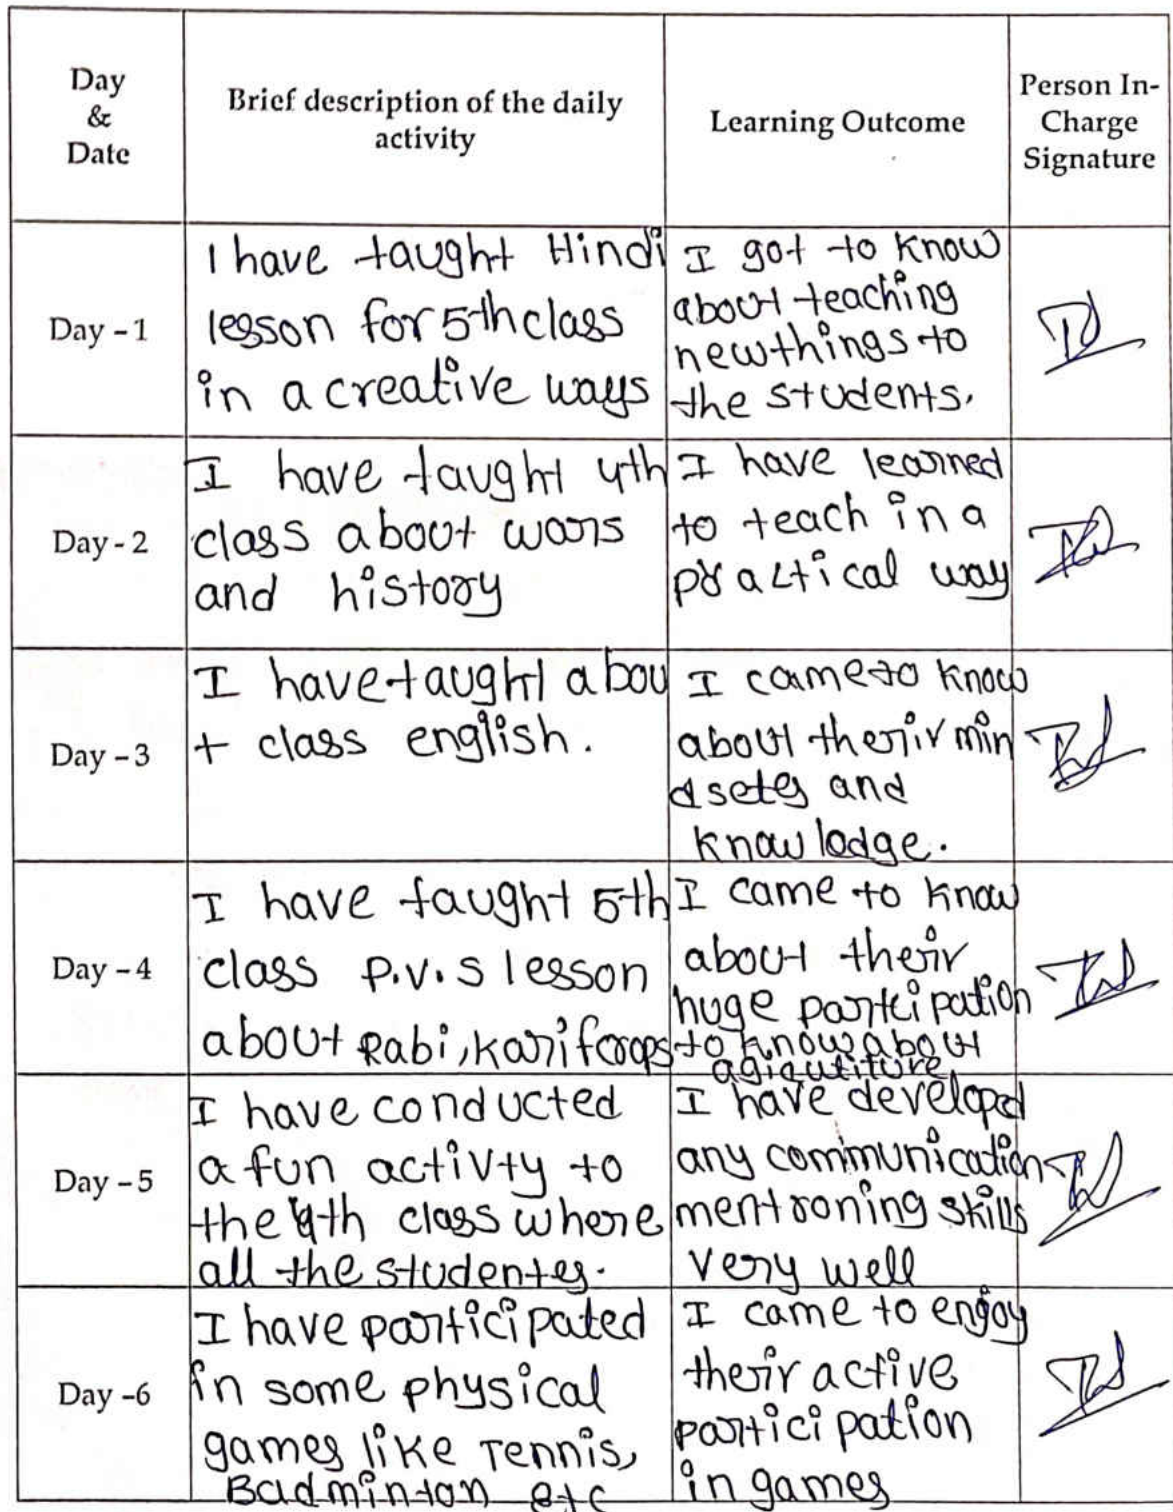 Day
&
Date
Brief description of the daily
activity
Learning Outcome
Person In-
Charge
Signature
Day - 1
I have taught Hindi
lesson for 5th class
in a creative ways
I got to know
about teaching
new things to
the students.
Day - 2
I have taught 4th
class about wars
and history
I have learned
to teach in a
practical way
Day - 3
I have taught abou
t class english.
I came to know
about their min
dsetes and
knowlodge.
Day - 4
I have taught 5th
class P.V.S lesson
about Rabi, karif crops
I came to know
about their
huge partcipation
to know about
agicutiture
Day - 5
I have conducted
a fun activty to
the 4th class where
all the studentes.
I have developed
any communication
mentroning skills
very well
Day -6
I have participated
in some physical
games like Tennis,
Badminton etc
I came to engoy
their active
participation
in games